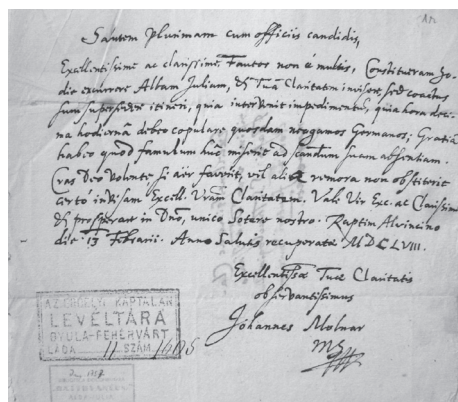 Salutem Plurimam cum officiis candidis,
Excellentissime ac clarissime Fautor non è multis, Constitueram ho-
die excurrere Albam Juliam, & Tuã Claritatem invisere, sed coactus
sum supersedere itineri, quia intervenit impedimentũ, quia hora deci-
ma hodiernâ debeo copulare quosdam Germanos; Gratiã
habeo quod famulum hùc miserit ad suam absentiam.
Cras Deo Volente si aër faverit, vel alia remora non obstiterit
certò invisam Excell. Vram̃ Claritatem. Vale Vir Exc. ac Clarissime
& prosperare in Dño, unico Sotere nostro. Raptim Alvincino
die 13 Februarii. Anno Salutis recuperatæ MDCLVIII.
Excellentissæ Tuæ Claritatis
observantissimus
Johannes Molnar
mp
AZ ERDÉLYI KÁPTALAN
LEVÉLTÁRA
GYULA-FEHÉRVÁRT
LADA 11 SZÁM